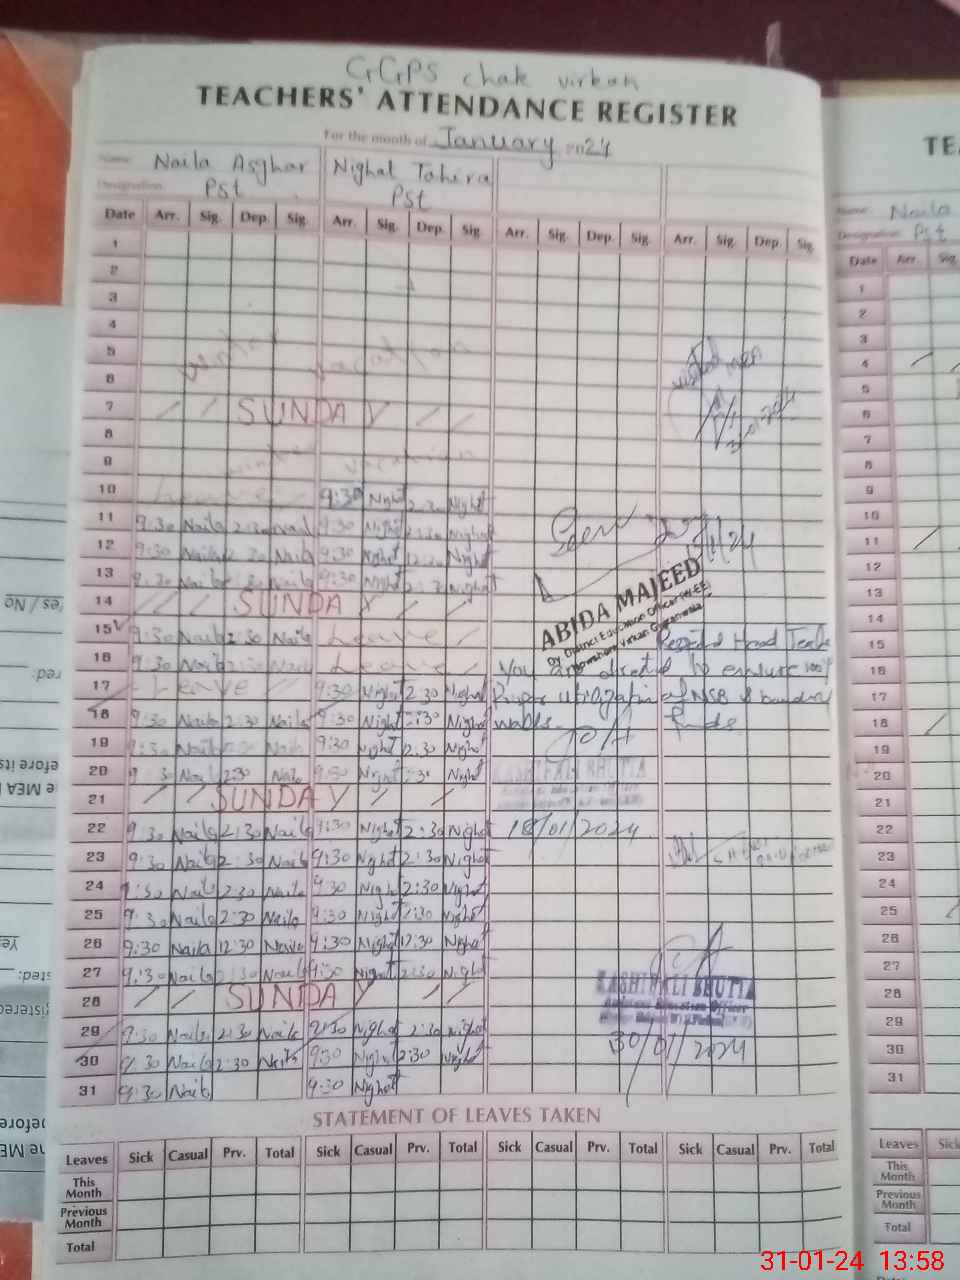 GGPS chak virkan
TEACHERS' ATTENDANCE REGISTER
For the month of January 2024
Name Naila Asghar Nighat Tahira
Designation Pst Pst
Date Arr. Sig. Dep. Sig. Arr. Sig. Dep. Sig. Arr. Sig. Dep. Sig. Arr. Sig. Dep. Sig.
1
2
3
4
5 winter vacation
6
7 SUNDAY
8
9 winter vacation
10 Leave 9:30 Night 2:30 Night
11 9:30 Naila 2:30 Naila 9:30 Night 2:30 Night
12 9:30 Naila 2:30 Naila 9:30 Night 12:30 Night
13 9:30 Naila 2:30 Naila 9:30 Night 2:30 Night
14 SUNDAY
15 9:30 Naila 2:30 Naila Leave
16 9:30 Naila 2:30 Naila Leave
17 Leave 9:30 Night 2:30 Night
18 9:30 Naila 2:30 Naila 9:30 Night 2:30 Night
19 9:30 Naila 9:30 Night 2:30 Night
20 9:30 Naila 2:30 Naila 9:30 Night 2:30 Night
21 SUNDAY
22 9:30 Naila 2:30 Naila 9:30 Night 2:30 Night
23 9:30 Naila 2:30 Naila 9:30 Night 2:30 Night
24 9:30 Naila 2:30 Naila 9:30 Night 2:30 Night
25 9:30 Naila 2:30 Naila 9:30 Night 2:30 Night
26 9:30 Naila 12:30 Naila 9:30 Night 12:30 Night
27 9:30 Naila 2:30 Naila 9:30 Night 2:30 Night
28 SUNDAY
29 9:30 Naila 2:30 Naila 9:30 Night 2:30 Night
30 9:30 Naila 2:30 Naila 9:30 Night 2:30 Night
31 9:30 Naila 9:30 Night
visited MEA
Seen
ABIDA MAJEED
Dy District Education Officer (W-EE)
Head
You are directed to ensure 100%
Proper utilization of NSB & boundary
walls funds
KASHIF ALI BHUTTA
18/01/2024
KASHIF ALI BHUTTA
Assistant Education Officer
30/01/2024
STATEMENT OF LEAVES TAKEN
Leaves Sick Casual Prv. Total Sick Casual Prv. Total Sick Casual Prv. Total Sick Casual Prv. Total
This Month
Previous Month
Total
TE
Name: Naila
Designation Pst
Date Arr. Sig.
1
2
3
4
5
6
7
8
9
10
11
12
13
14
15
16
17
18
19
20
21
22
23
24
25
26
27
28
29
30
31
Leaves Sick
This Month
Previous Month
Total
Yes / No
31-01-24 13:58